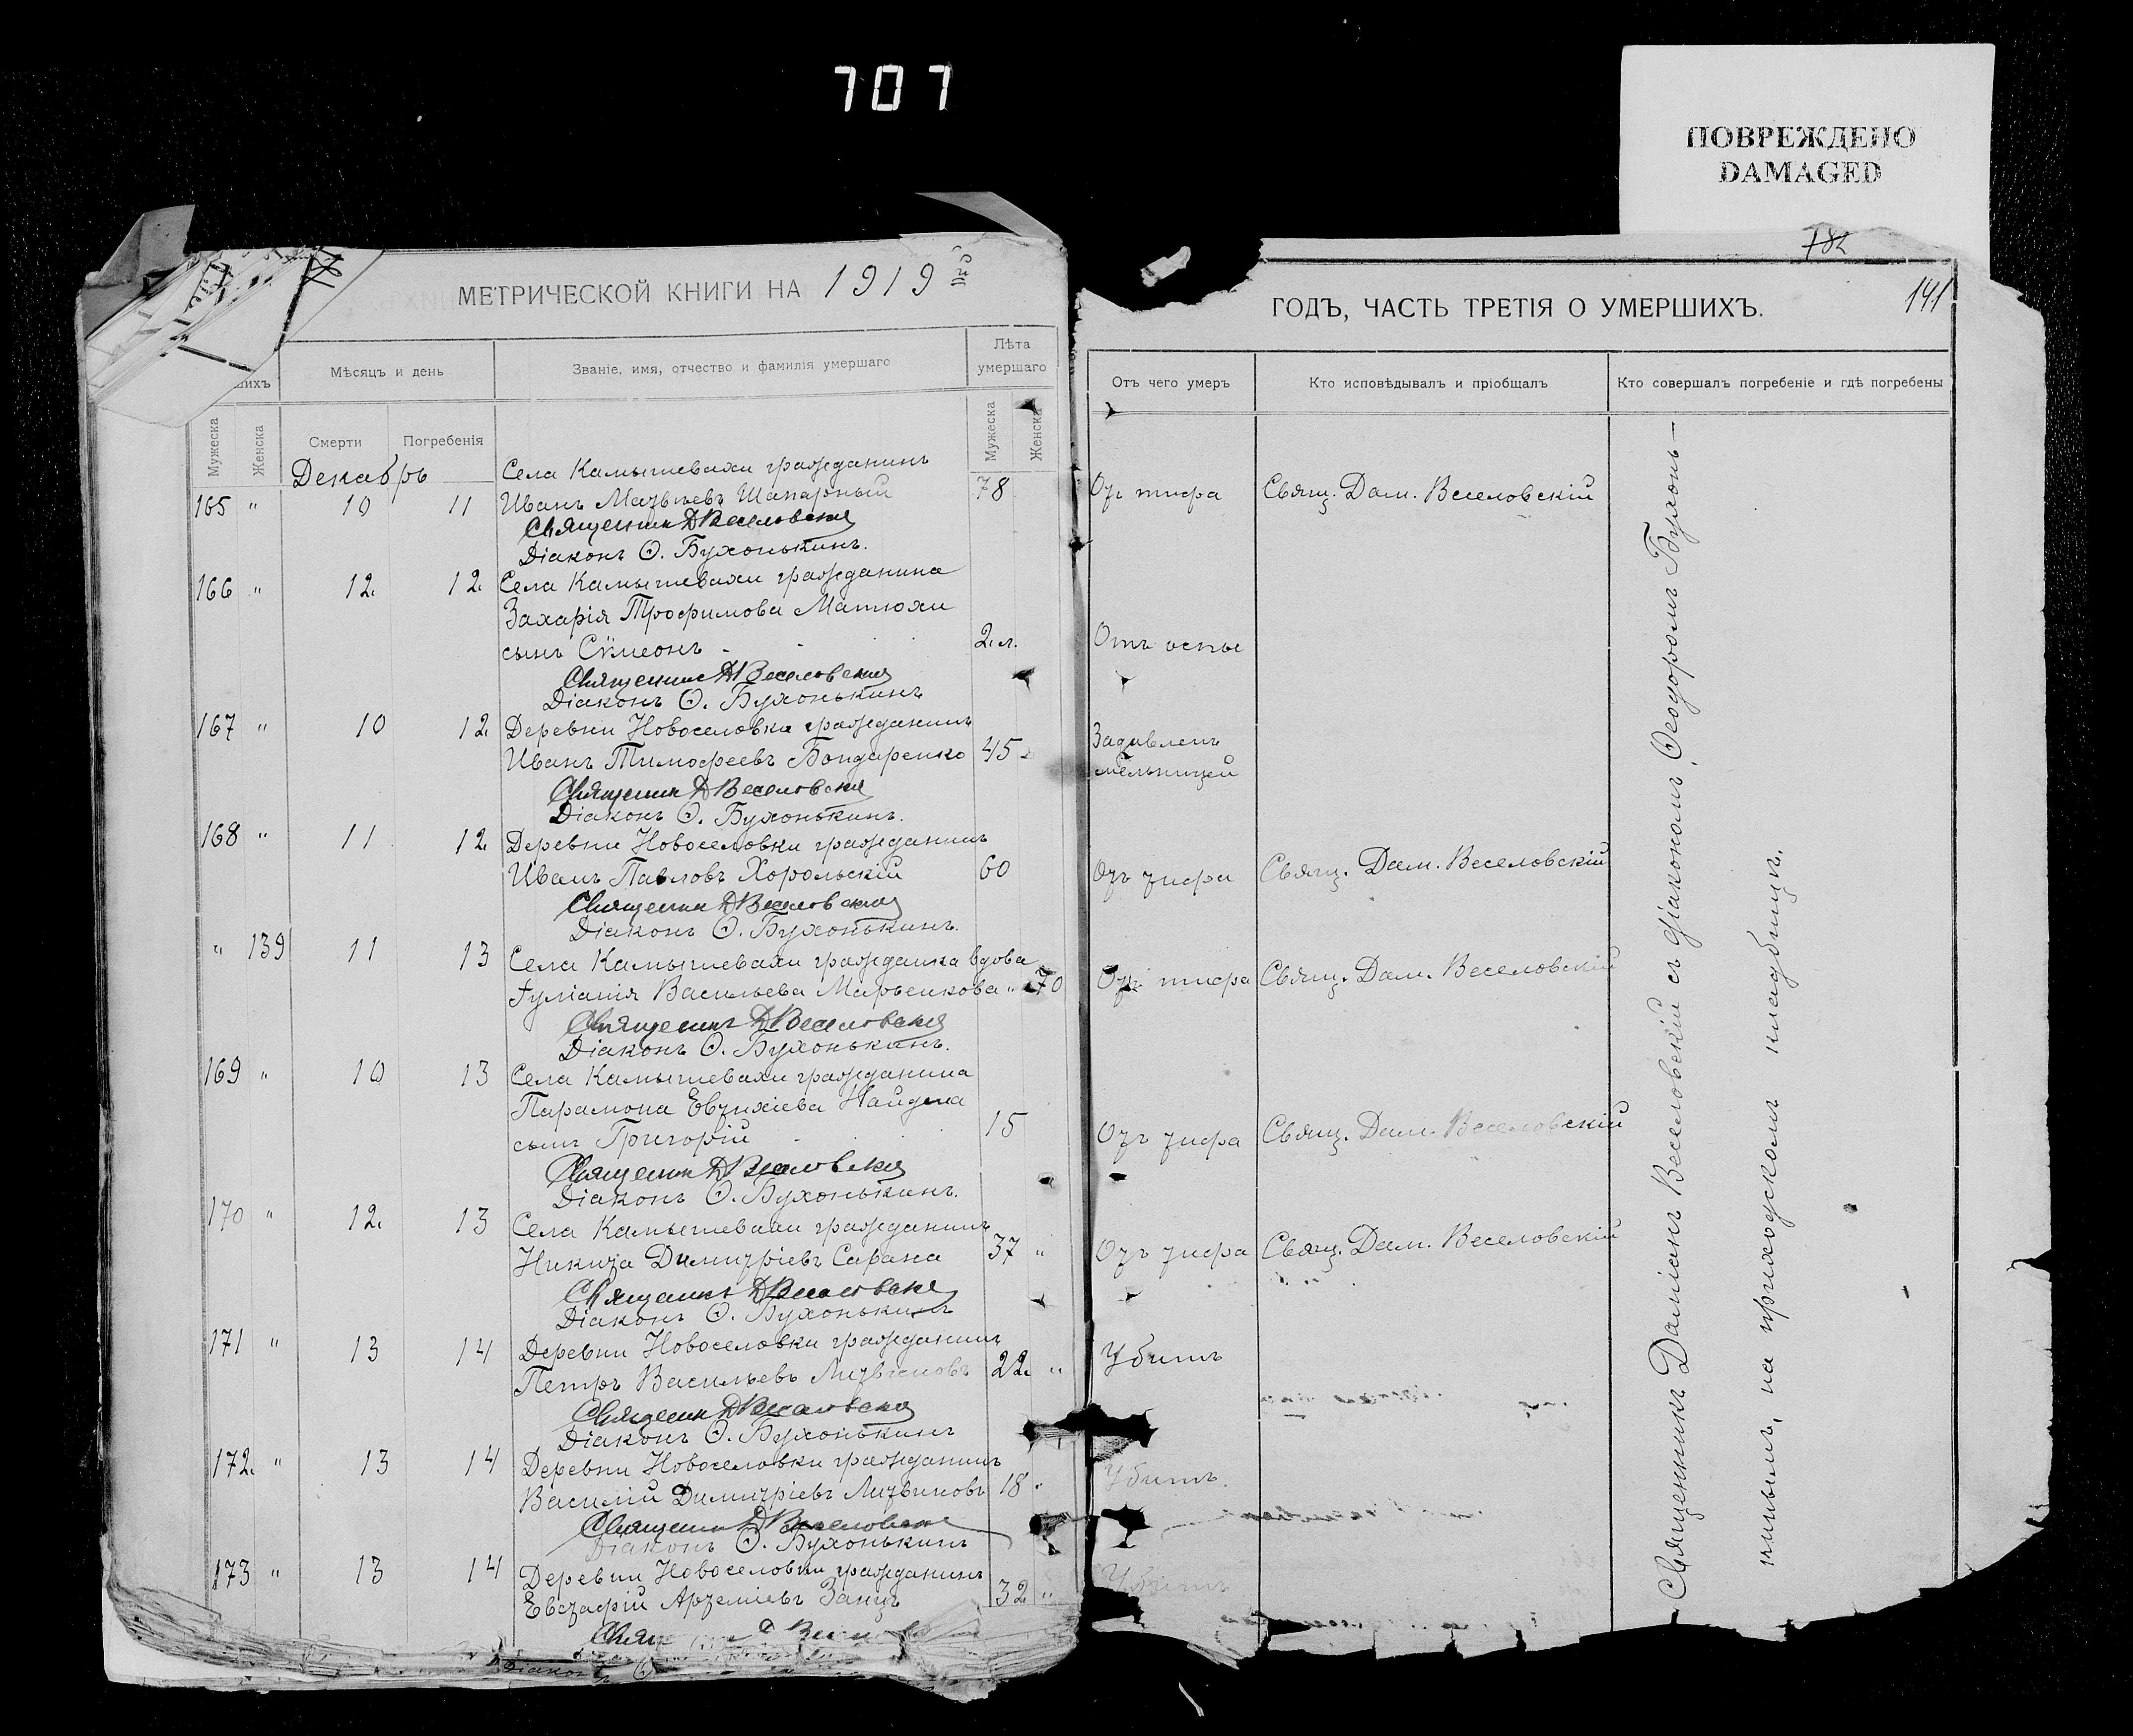 707
ПОВРЕЖДЕНО
DAMAGED
182
141
МЕТРИЧЕСКОЙ КНИГИ НА 1919
ГОДЪ, ЧАСТЬ ТРЕТІЯ О УМЕРШИХЪ.
ихъ
Мѣсяцъ и день
Званіе, имя, отчество и фамилія умершаго
Лѣта умершаго
Отъ чего умеръ
Кто исповѣдывалъ и пріобщалъ
Кто совершалъ погребеніе и гдѣ погребены
Мужеска
Женска
Смерти
Погребенія
Мужеска
Женска
Декабрь
Села Камышевахи гражданинъ
165 " 10 11 Иванъ Матвѣевъ 78 Отъ тифа Свящ. Дам. Веселовскій
Священникъ Д Веселовскій
Діаконъ Ѳ. Бухонькинъ.
166 " 12. 12. Села Камышевахи гражданина
Захарія Трофимова Матюхи
сынъ Сѵмеонъ 2. л. Отъ оспы
Священникъ Д Веселовскій
Діаконъ Ѳ. Бухонькинъ
167 " 10 12. Деревни Новоселовки гражданинъ Задавленъ
Иванъ Тимофеевъ Бондаренко 45 мельницей
Священникъ Д Веселовскій
Діаконъ Ѳ. Бухонькинъ.
168 " 11 12. Деревни Новоселовки гражданинъ
Иванъ Павловъ Хорольскій 60 Отъ тифа Свящ. Дам. Веселовскій
Священникъ Д Веселовскій
Діаконъ Ѳ. Бухонькинъ.
" 139 11 13 Села Камышевахи гражданка вдова
Іуліанія Васильева Марьенкова " 70 Отъ тифа Свящ. Дам. Веселовскій
Священникъ Д Веселовскій
Діаконъ Ѳ. Бухонькинъ.
169 " 10 13 Села Камышевахи гражданина
Парамона Евтихіева Найдена
сынъ Григорій 15 Отъ тифа Свящ. Дам. Веселовскій
Священникъ Д Веселовскій
Діаконъ Ѳ. Бухонькинъ.
170 " 12. 13 Села Камышевахи гражданинъ
Никита Димитріевъ Сарана 37 " Отъ тифа Свящ. Дам. Веселовскій
Священникъ Д Веселовскій
Діаконъ Ѳ. Бухонькинъ
171 " 13 14 Деревни Новоселовки гражданинъ
Петръ Васильевъ Литвиновъ 22. " Убитъ
Священникъ Д Веселовскій
Діаконъ Ѳ. Бухонькинъ
172. " 13 14 Деревни Новоселовки гражданинъ
Василій Димитріевъ Литвиновъ 18 " Убитъ.
Священникъ Д Веселовскій
Діаконъ Ѳ. Бухонькинъ
173 " 13 14 Деревни Новоселовки гражданинъ
Евстафій Артеміевъ Заецъ 32 " Убитъ
Діаконъ Ѳ
Священникъ Даміанъ Веселовскій съ діакономъ Ѳеодоромъ Бухонь-
кинымъ, на приходскомъ кладбищѣ.